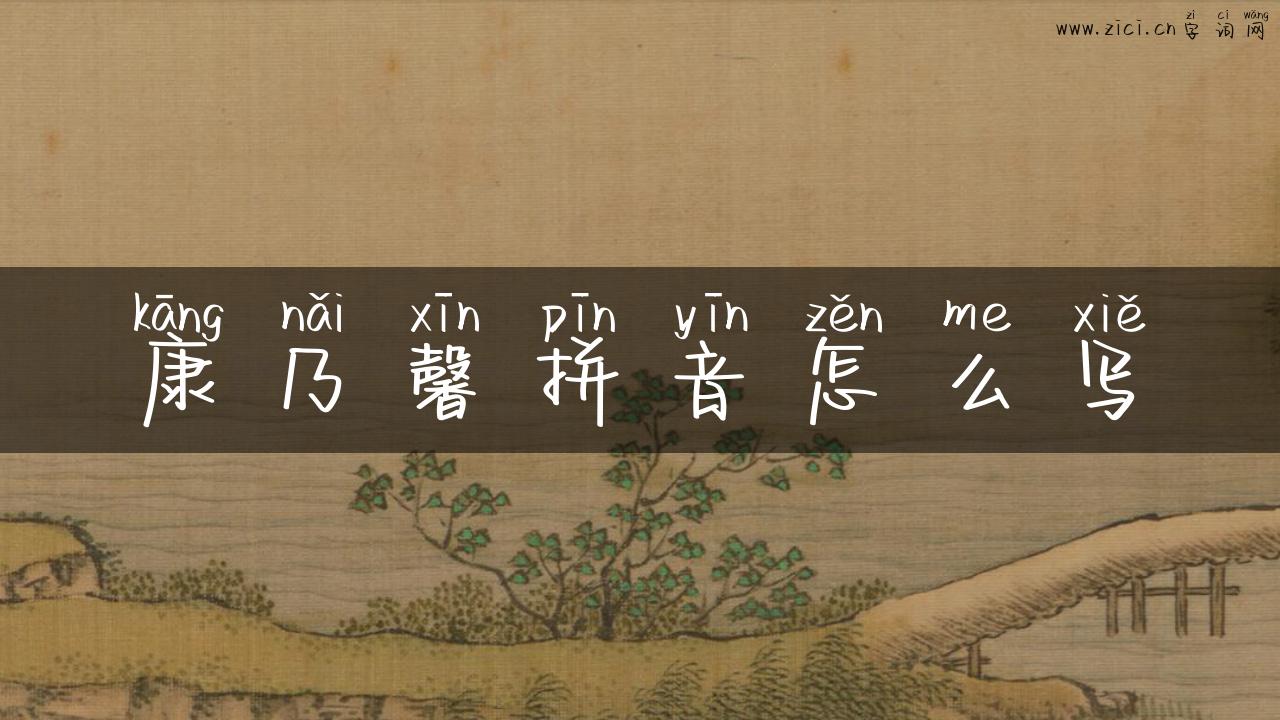 zì cí wǎng
www.zici.cn 字词网
kāng nǎi xīn pīn yīn zěn me xiě
康乃馨拼音怎么写